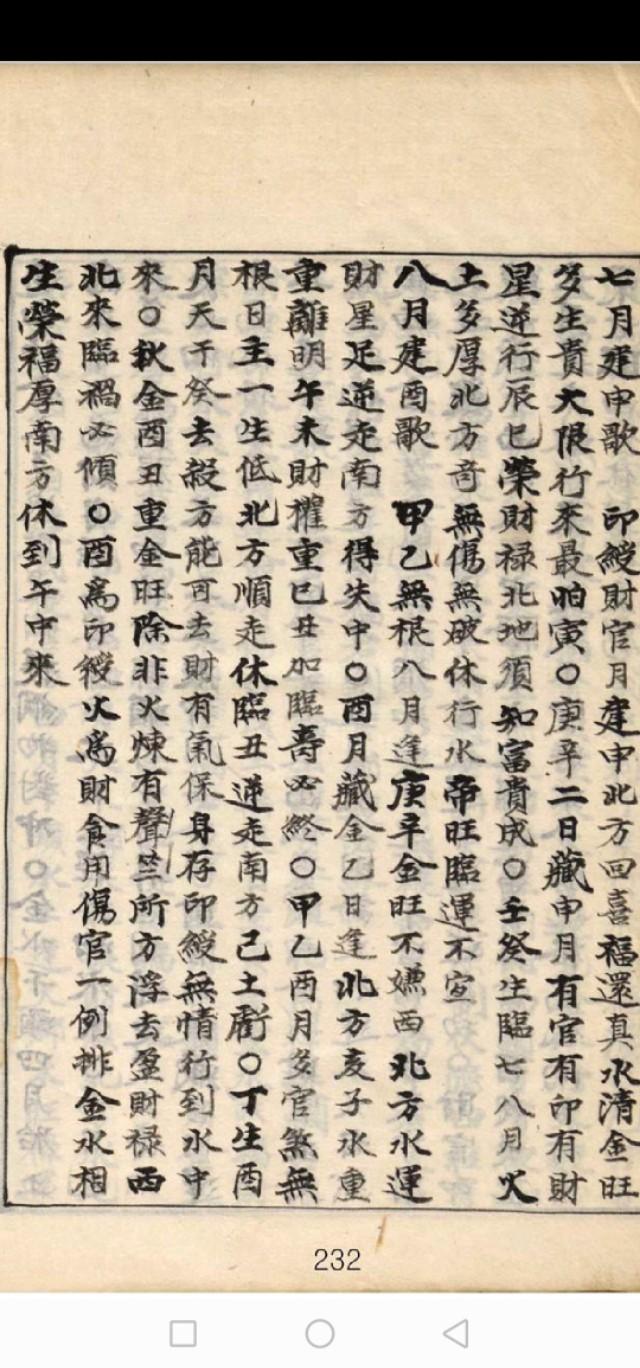 七月建申歌 印綬財官月建申北方回喜福還真水清金旺
多生貴大限行來最怕寅○庚辛二日藏申月有官有印有財
星逆行辰巳榮財禄北地須知富貴成○壬癸生臨七八月火
土多厚北方奇無傷無破休行水帝旺臨運不宣
八月建酉歌 甲乙無根八月逢庚辛金旺不嫌西北方水運
財星足逆走南方得失中○酉月藏金乙日逢北方亥子水重
重離明午未財權重巳丑加臨壽必終○甲乙酉月多官煞無
根日主一生低北方順走休臨丑逆走南方己土虧○丁生酉
月天干癸去殺方能可去財有氣保身存印綬無情行到水中
來○秋金酉丑重金旺除非火煉有聲 所方浮去盈財禄西
北來臨禍必傾○酉為印綬火為財食用傷官一例排金水相
生榮福厚南方休到午中來
232